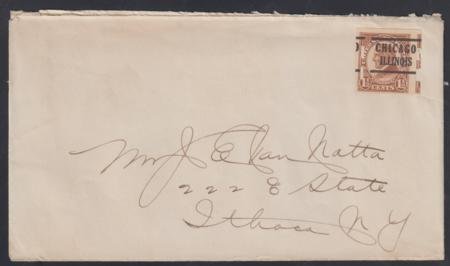 CHICAGO
ILLINOIS
1½ CENTS 1½
Mr J. E. Van Natta
222 E State
Ithaca N Y